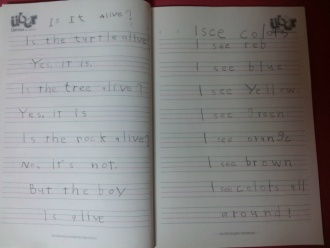 Is It alive?
Is the turtle alive?
Yes, it is
Is the tree alive?
Yes, it is
Is the rock alive?
No, it's not.
But the boy
Is alive
I see colors
I see red
I see blue
I see Yellow
I see Green
I see orange
I see brown
I see colors all
around!